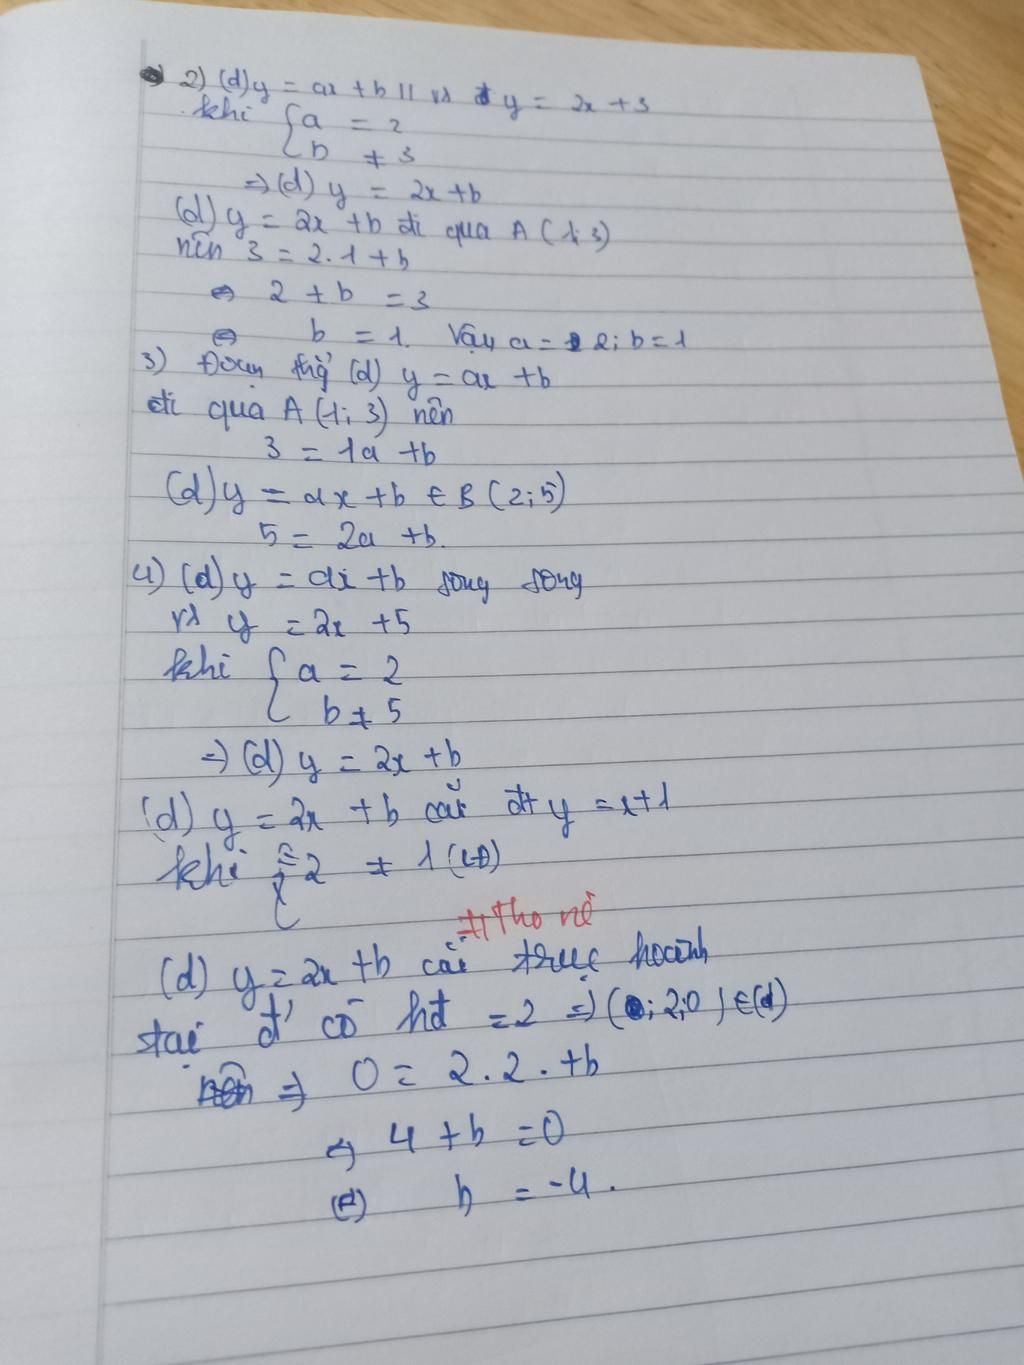 2) (d) y = ax + b // vs đt y = 2x + 3
khi { a = 2
b ≠ 3
=> (d) y = 2x + b
(d) y = 2x + b đi qua A (1; 3)
nên 3 = 2.1 + b
<=> 2 + b = 3
<=> b = 1. Vậy a = 2; b = 1
3) Đoạn thg̉ (d) y = ax + b
đi qua A (1; 3) nên
3 = 1a + b
(d) y = ax + b ∈ B (2; 5)
5 = 2a + b.
4) (d) y = ax + b song song
vs y = 2x + 5
khi { a = 2
b ≠ 5
=> (d) y = 2x + b
(d) y = 2x + b cắt đt y = x + 1
khi { 2 ≠ 1 (LĐ)
#Tho nè
(d) y = 2x + b cắt trục hoành
tại đ' có hđ = 2 => (2; 0) ∈ (d)
=> 0 = 2.2. + b
<=> 4 + b = 0
<=> b = -4.